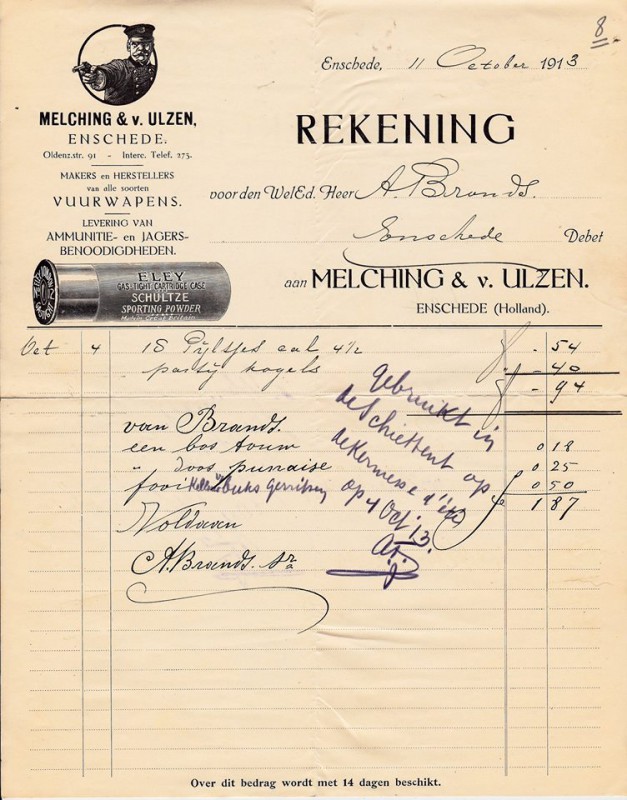 8.
Enschede, 11 October 1913
MELCHING & v. ULZEN,
ENSCHEDE.
Oldenz.str. 91 - Interc. Telef. 275.
MAKERS EN HERSTELLERS
van alle soorten
VUURWAPENS.
LEVERING VAN
AMMUNITIE- EN JAGERS-
BENOODIGHEDEN.
ELEY
GAS-TIGHT-CARTRIDGE CASE
SCHULTZE
SPORTING POWDER
Made in Great Britain
REKENING
voor den WelEd. Heer A. Brands.
Enschede Debet
aan MELCHING & v. ULZEN.
ENSCHEDE (Holland).
Oct 4 18 Pijltjes cal 4½ - 54
partij kogels - 40
- 94
van Brands.
een bos touw 0 18
" doos punaise 0 25
fooi Gerritsen 0 50
1 87
Voldaan
A. Brands. Sr
Gebruikt in
de Schiettent op
de Kermesse d'été
op 4 Oct 13.
Over dit bedrag wordt met 14 dagen beschikt.